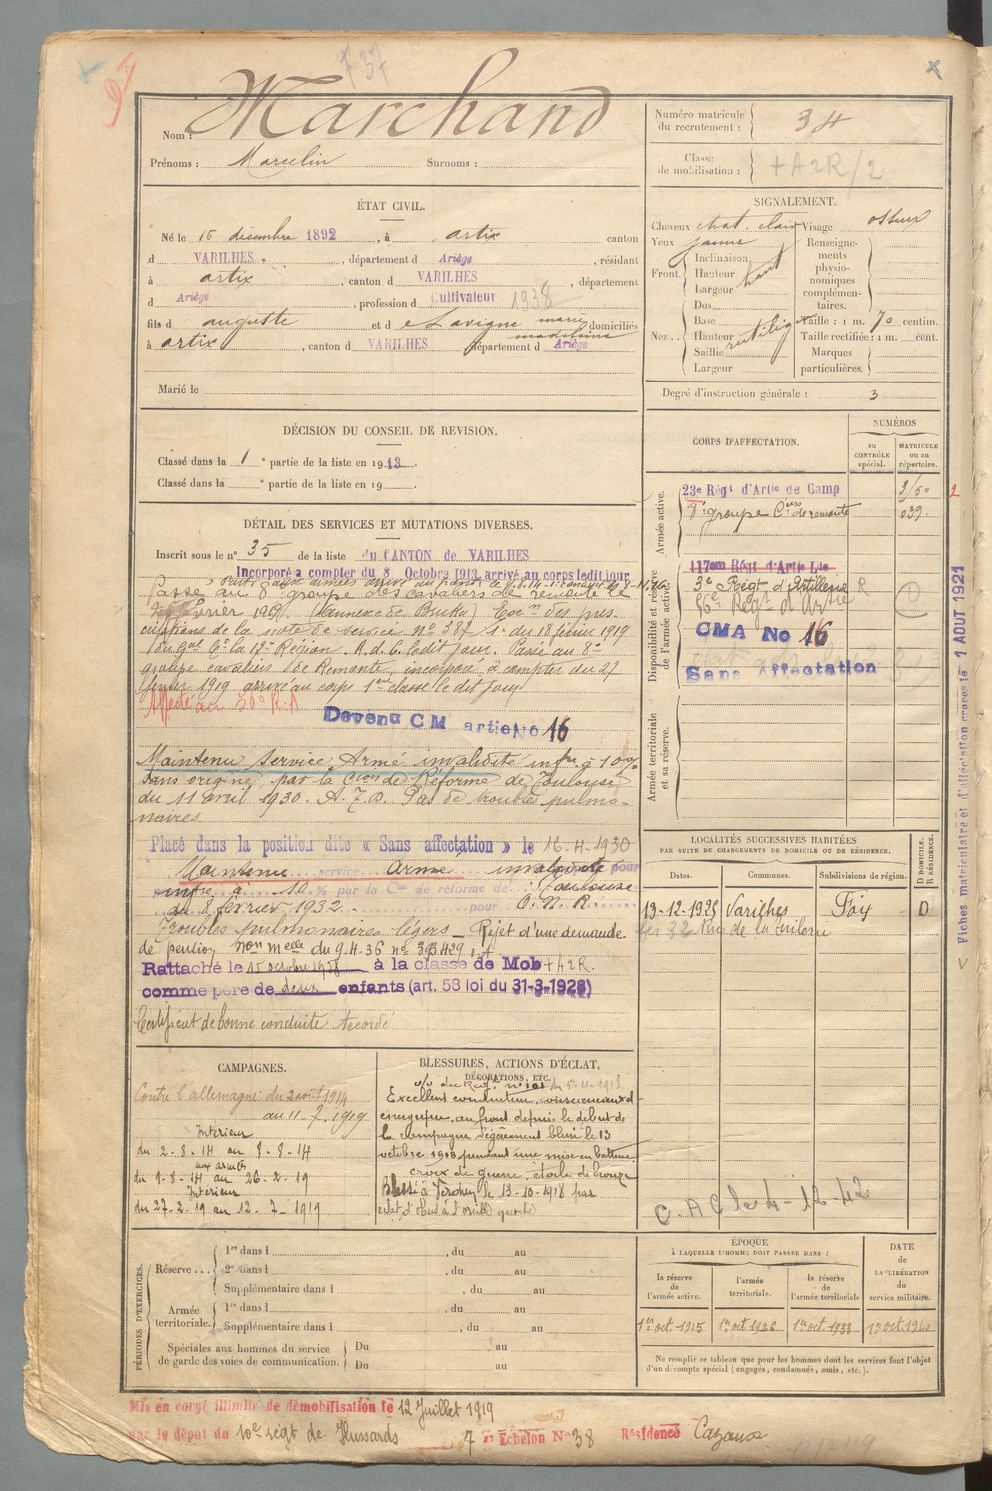 737
Nom : Marchand
Prénoms : Marcelin Surnoms :
Numéro matricule du recrutement : 34
Classe de mobilisation : + A2R/2
ÉTAT CIVIL.
Né le 16 décembre 1892, à artix canton
d VARILHES, département d Ariège, résidant
à artix, canton d VARILHES, département
d Ariège, profession d Cultivateur 1938
fils d auguste et d Lavigne marie madeleine domiciliés
à artix, canton d VARILHES département d Ariège
Marié le
SIGNALEMENT.
Cheveux chat. clair Visage osseux
Yeux jaune
Front. Inclinaison Hauteur haut Largeur
Nez.. Dos Base Hauteur rectilig Saillie Largeur
Renseignements physionomiques complémentaires.
Taille : 1 m. 70 centim.
Taille rectifiée : 1 m. cent.
Marques particulières.
Degré d'instruction générale : 3
DÉCISION DU CONSEIL DE REVISION.
Classé dans la 1e partie de la liste en 1913.
Classé dans la e partie de la liste en 19
CORPS D'AFFECTATION.
NUMÉROS
au CONTRÔLE spécial.
MATRICULE ou au répertoire.
Armée active.
23e Régt d'Artie de Camp 3/50
8e groupe Ciers de remonte 039
Disponibilité et réserve de l'armée active.
117em Régt d'Artie Lde
3e Régt d'Artillerie R
56e Régt d'Artie
CMA No 16
Sans Affectation
Armée territoriale et sa réserve.
DÉTAIL DES SERVICES ET MUTATIONS DIVERSES.
Inscrit sous le n° 35 de la liste du CANTON de VARILHES
Incorporé a compter du 8 Octobre 1913 arrivé au corps ledit jour
Passé au 8e groupe des cavaliers de remonte le
février 1919 (Annexe de ) Exon des pres
criptions de la note de service n° 387 1/ du 18 février 1919
Région. R.d.C. ledit jour. Passé au 8e
groupe cavaliers de Remonte, incorporé à compter du 27
février 1919 arrivé au corps classe le dit jour
Affecté au 50e R.A
Devenu C M artie No 16
Maintenu Service Armé invalidité infre à 10%
sans origine, par la Cion de Réforme de Toulouse
du 11 avril 1930. Pas de troubles pulmo-
naires
Placé dans la position dite « Sans affectation » le 16-4-1930
Maintenu service armé invalidité pour
infre à 10 % par la Con de réforme de Toulouse
du 8 février 1932 pour
Troubles pulmonaires légers - Rejet d'une demande
de pension non melle du 9.4.36
Rattaché le 15 octobre 1938 à la classe de Mob + A2R.
comme père de deux enfants (art. 58 loi du 31-3-1928)
Certificat de bonne conduite Accordé
LOCALITÉS SUCCESSIVES HABITÉES
PAR SUITE DE CHANGEMENTS DE DOMICILE OU DE RÉSIDENCE.
Dates. Communes. Subdivisions de région. D DOMICILE. R RÉSIDENCE.
13-12-1925 Varilhes Foix D
32 Rue de la Tuilerie
C.A.C le 4-12-42
CAMPAGNES.
Contre l'allemagne : du 2 août 1914
au 11-7-1919
Intérieur
du 2-8-14 au 8-8-14
aux armées
du 9-8-14 au 26-2-19
Intérieur
du 27-2-19 au 12-7-1919
BLESSURES, ACTIONS D'ÉCLAT,
DÉCORATIONS, ETC.
o/v du Régt n° 101 du 5-11-1918
Excellent conducteur, consciencieux et
énergique, au front depuis le début de
la campagne. Légèrement blessé le 13
octobre 1918 pendant une mise en batterie
croix de guerre étoile de bronze
Blessé à le 13-10-1918 par
éclat d'obus à l'oreille gauche
PÉRIODES D'EXERCICES.
Réserve...
1re dans l , du au
2e dans l , du au
Supplémentaire dans l , du au
Armée territoriale.
1re dans l , du au
Supplémentaire dans l , du au
Spéciales aux hommes du service de garde des voies de communication.
Du au
Du au
ÉPOQUE
À LAQUELLE L'HOMME DOIT PASSER DANS :
la réserve de l'armée active.
l'armée territoriale.
la réserve de l'armée territoriale
DATE de LA LIBÉRATION du service militaire.
1er oct 1915 1er oct 1926 1er oct 1933 1er oct 1940
Ne remplir ce tableau que pour les hommes dont les services font l'objet d'un décompte spécial (engagés, condamnés, omis, etc.).
Mis en congé illimité de démobilisation le 12 Juillet 1919
par le dépôt du 10e régt de Hussards 7e Echelon N° 38 Résidence Cazaux
Fiches matriculaire et d'affectation créées le 1 AOUT 1921